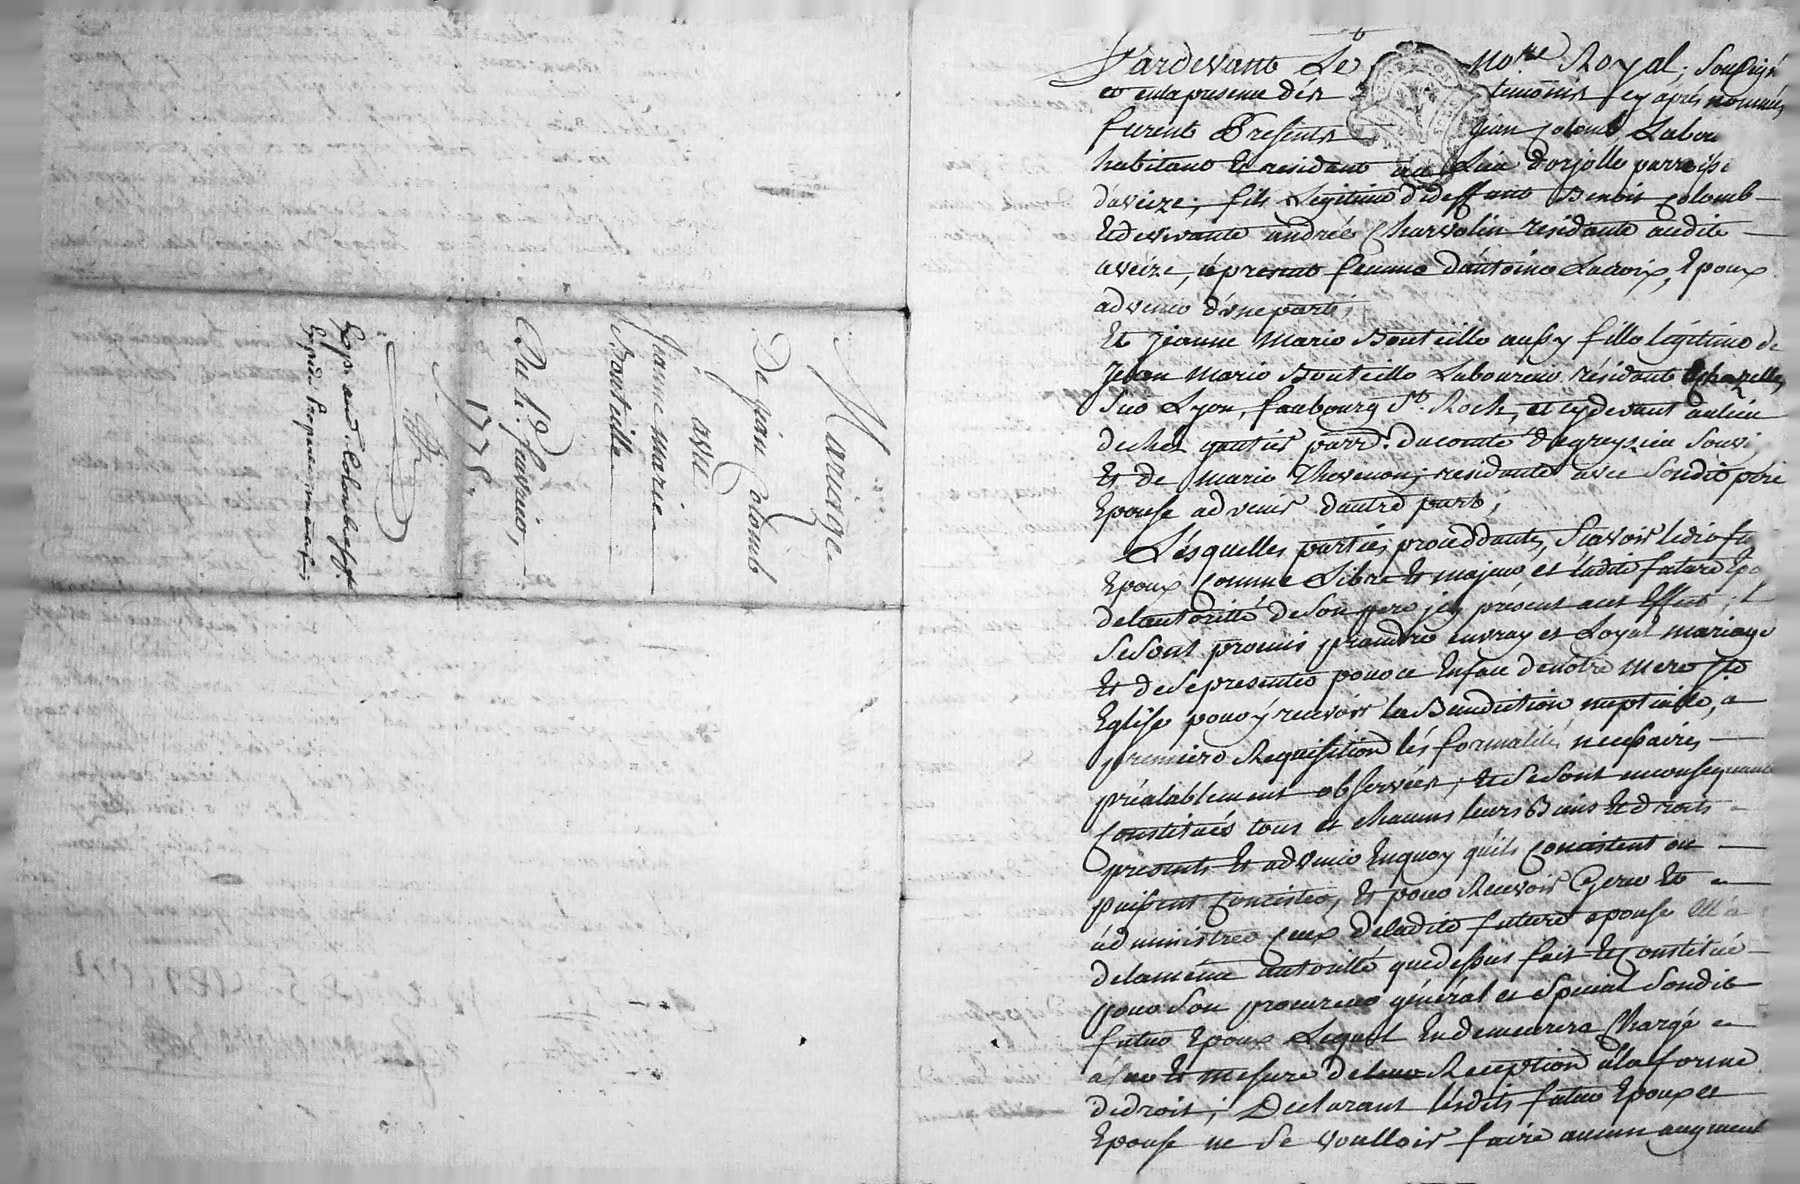 Mariage
De jean Colomb
avec
Jeanne marie
Bouteille
Du 12 fevrier,
177
Exp. aud. Colomb
Pardevant Le No.re Royal, Soussigné
et en la presence des temoins cy après nommés
furent Presents jean Colomb Labou
habitant Et residant au Lieu d'orjolle parroisse
d'aveize, fils Legitime de deffunt Benoit Colomb
Et de vivante andrée Charvolin résidante audit
aveize, à present femme d'antoine Lacroix, Epoux
advenir d'une part;
Et Jeanne Marie Bouteille aussy fille légitime de
Jean Marie Bouteille Laboureur résidant à Chazelles
sur Lyon, faubourg St. Roch, et cy devant au lieu
de chez gontier parr. ducomté
Et de Marie Thevenon, residante avec Sondit père
Epouse advenir d'autre part,
Lesquelles parties procedantes, Sçavoir ledit fu
Epoux Comme Libre Et majeur et ladite future Epo
de lautorité de Son pere icy présent a cet Effet,
Se Sont promis prandre en vray et Loyal mariage
Et de Se presenter pour ce En face de notre mere Ste
Eglise pour y recevoir la Benediction nuptialle, a
premiere Requisition les formalités necessaires
préalablement observées, Et Se Sont en consequance
Constitués tous et chacuns leurs Biens Et droits
presents Et advenir En quoy qu'ils Concistent ou
puissent Concister, Et pour Recevoir Gerer Et
administrer Ceux de ladite future epouse
de la meme autorité que dessus fait Et Constitué
pour Son procureur général et Special Sondit
futur Epoux Lequel En demeurera Chargé
a fur Et mesure de leur Reception à la forme
de droit; Declarant lesdits futur Epoux et
Epouse ne Se voulloir faire aucun augment